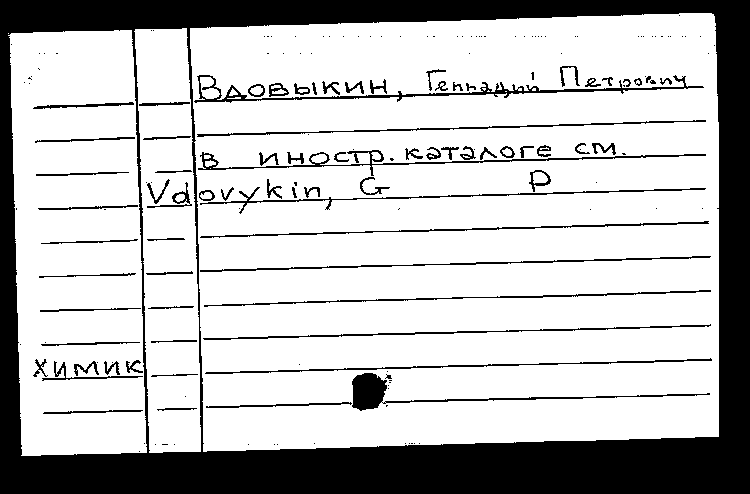 Вдовыкин, Геннадий Петрович
в иностр. каталоге см.
Vdovykin, G P
химик